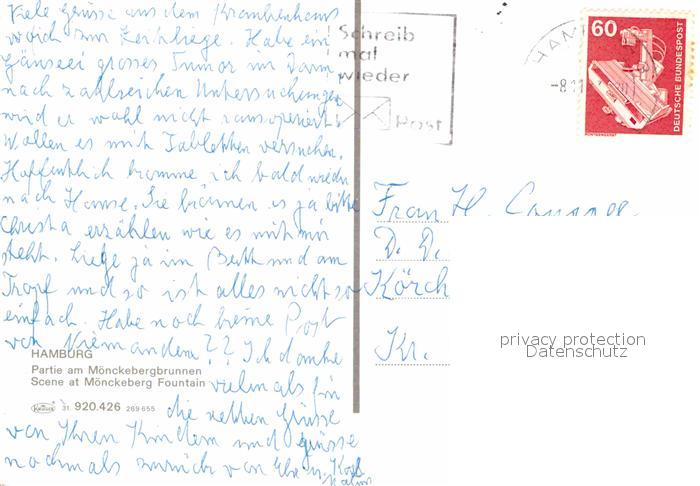 Viele Grüsse aus dem Krankenhaus
wo ich zur Zeit liege. Habe ein
Gänseei grosses Tumor im Darm
nach zahlreichen Untersuchungen
wird er wohl nicht rausoperiert
Wollen es mit Tabletten versuchen.
Hoffentlich komme ich bald wieder
nach Hause. Sie können es ja bitte
Christa erzählen wie es mit mir
steht. Liege ja im Bett und am
Tropf und so ist alles nicht so
einfach. Habe noch keine Post
von Niemandem?? Ich danke
vielmals für
die netten Grüsse
von Ihren Kindern und grüsse
nochmals zurück von
HAMBURG
Partie am Mönckebergbrunnen
Scene at Mönckeberg Fountain
Krüger 31 920.426 269 655
Schreib
mal
wieder
Post
HAM
60
DEUTSCHE BUNDESPOST
Frau H.
D. D.
Körch
Kr.
privacy protection
Datenschutz